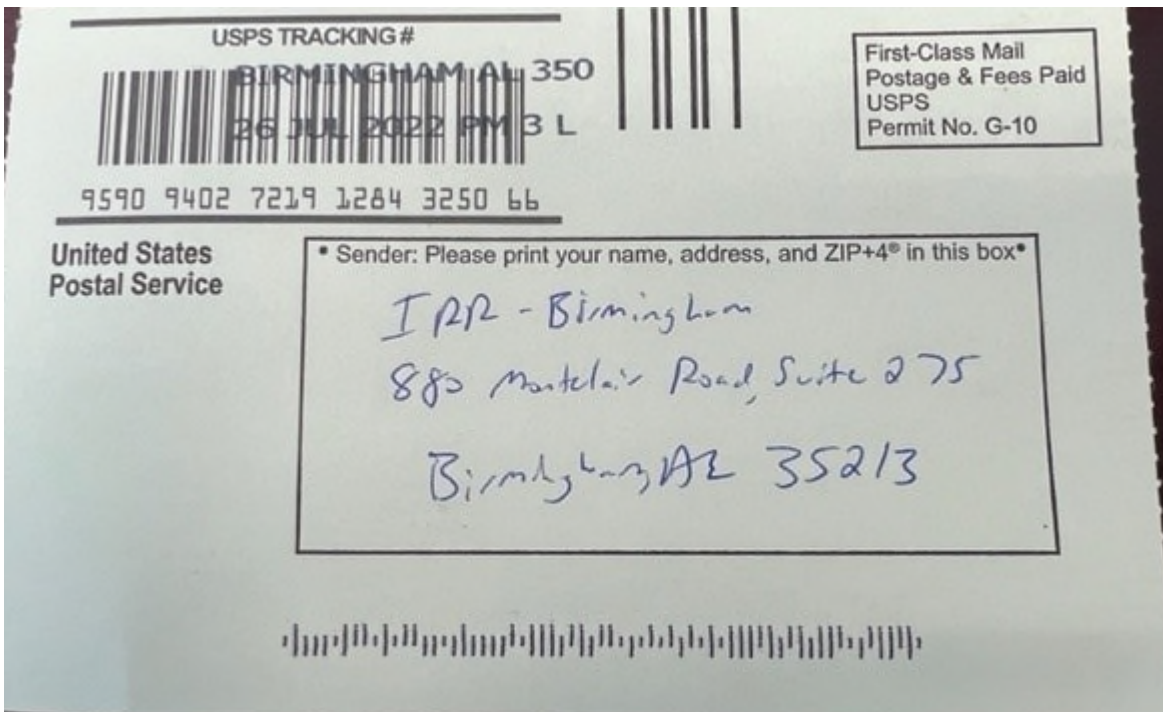 USPS TRACKING #
BIRMINGHAM AL 350
26 JUL 2022 PM 3 L
9590 9402 7219 1284 3250 66
First-Class Mail
Postage & Fees Paid
USPS
Permit No. G-10
United States
Postal Service
• Sender: Please print your name, address, and ZIP+4® in this box•
IRR - Birmingham
880 Montclair Road, Suite 275
Birmingham, AL 35213